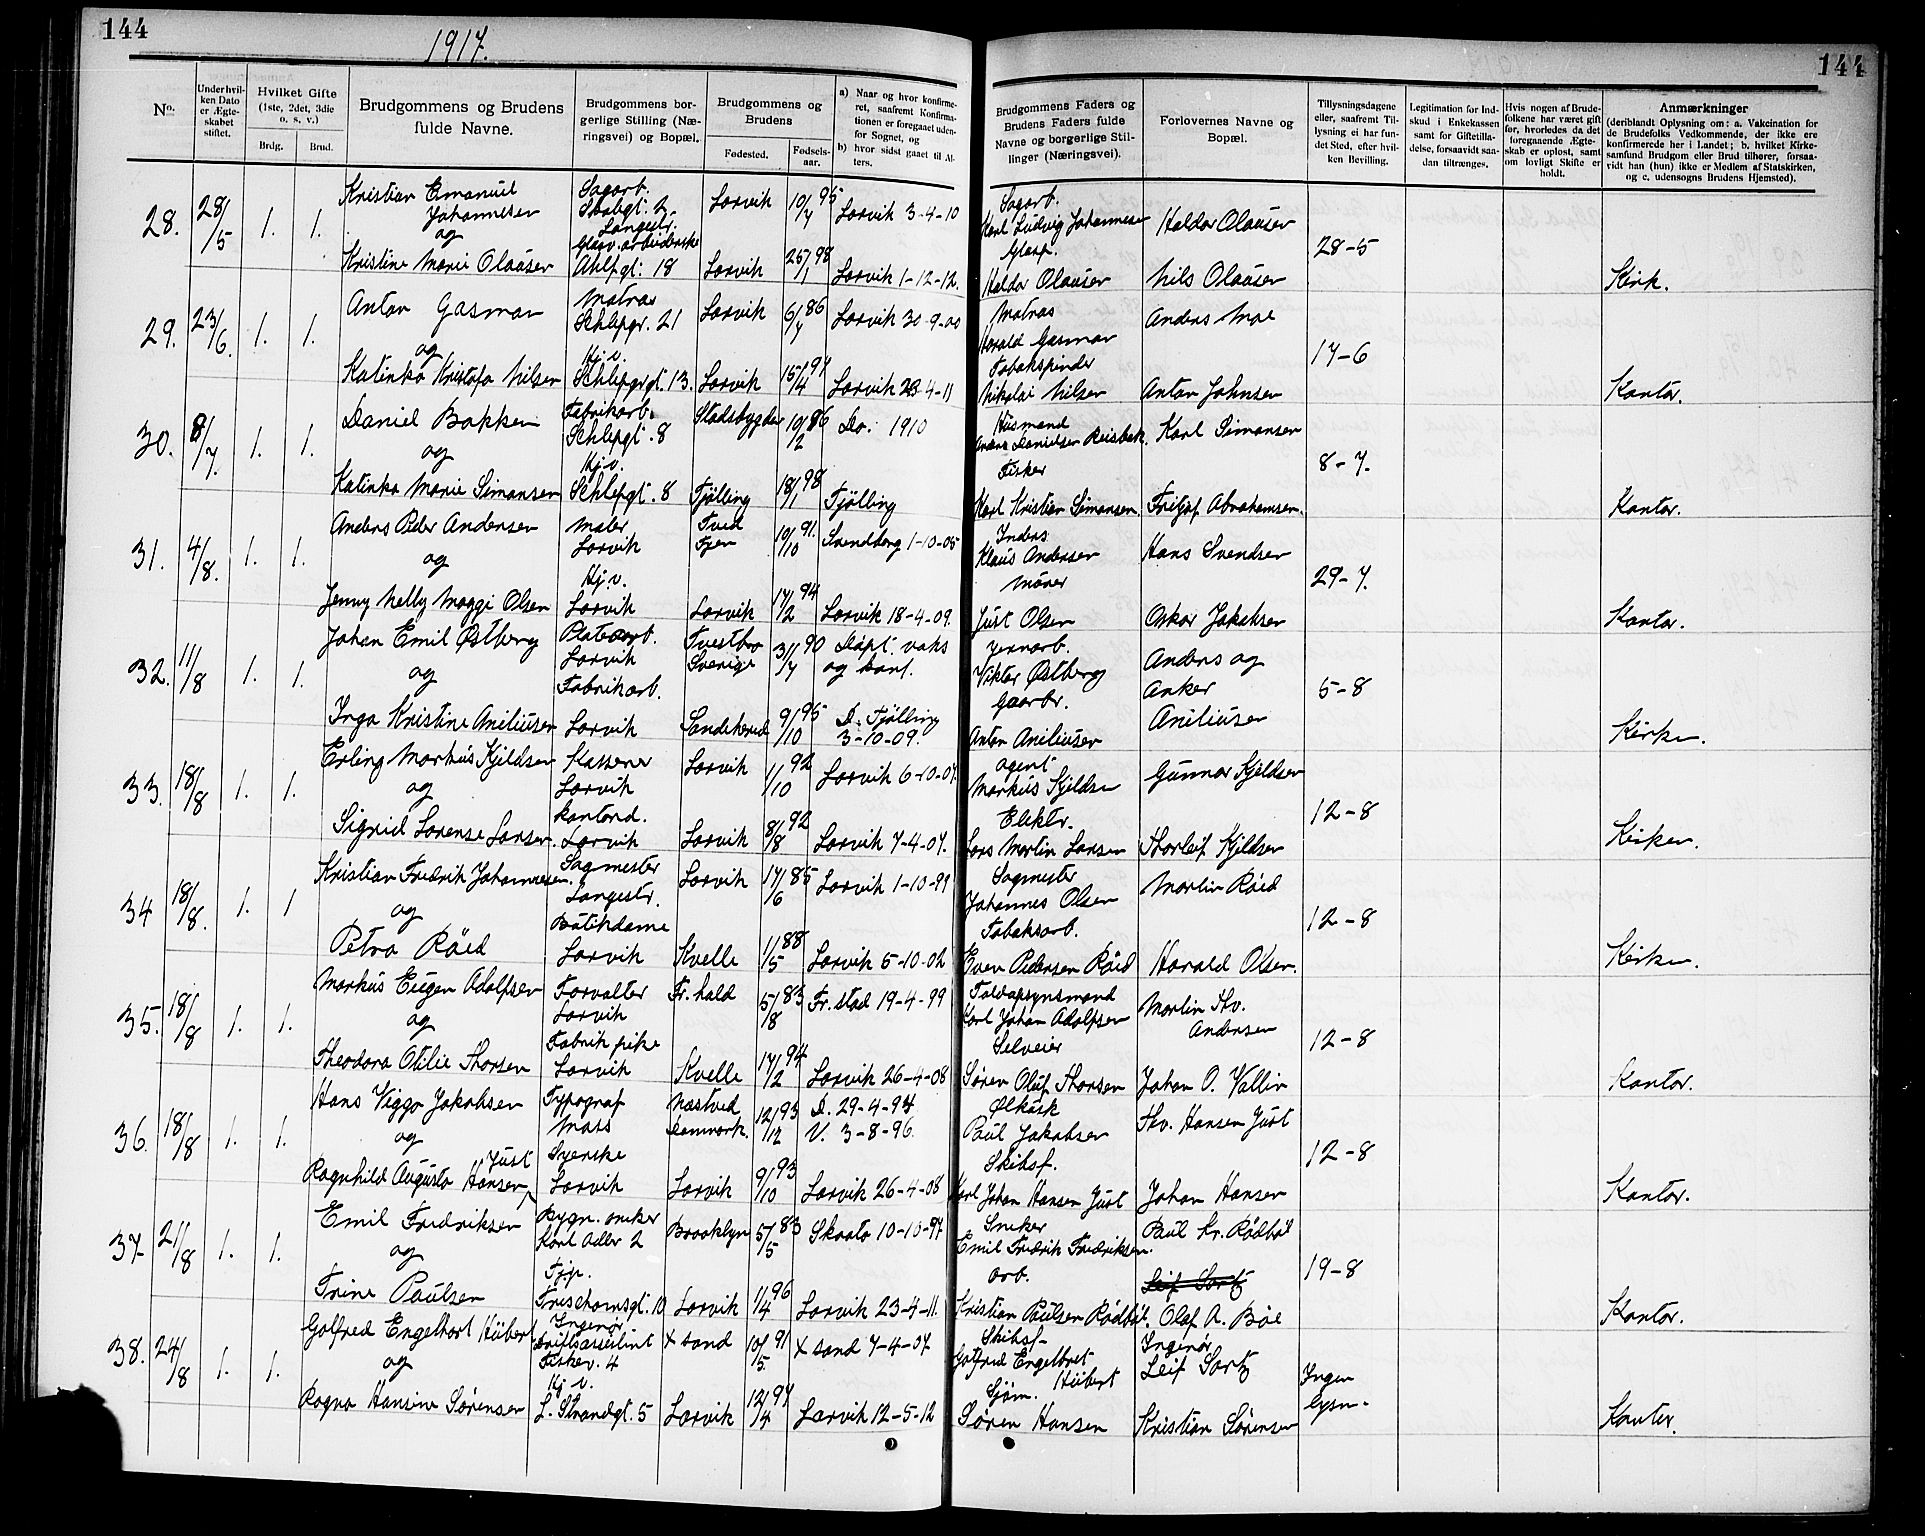 144
1917.
144
No.
Under hvilken Dato er Ægteskabet stiftet.
Hvilket Gifte (1ste, 2det, 3die o. s. v.)
Brdg.
Brud.
Brudgommens og Brudens fulde Navne.
Brudgommens borgerlige Stilling (Næringsvei) og Bopæl.
Brudgommens og Brudens
Fødested.
Fødselsaar.
a) Naar og hvor konfirmeret, saafremt Konfirmationen er foregaaet udenfor Sognet, og
b) hvor sidst gaaet til Alters.
Brudgommens Faders og Brudens Faders fulde Navne og borgerlige Stillinger (Næringsvei).
Forlovernes Navne og Bopæl.
Tillysningsdagene eller, saafremt Tillysning ei har fundet Sted, efter hvilken Bevilling.
Legitimation for Indskud i Enkekassen samt for Giftetilladelse, forsaavidt saadan tiltrænges.
Hvis nogen af Brudefolkene har været gift før, hvorledes da det foregaaende Ægteskab er opløst, samt om lovligt Skifte er holdt.
Anmærkninger
(deriblandt Oplysning om: a. Vakcination for de Brudefolks Vedkommende, der ikke ere konfirmerede her i Landet; b. hvilket Kirkesamfund Brudgom eller Brud tilhører, forsaavidt han (hun) ikke er Medlem af Statskirken, og c. udensogns Brudens Hjemsted).
28. 28/5 1. 1. Kristian Emanuel Johannesen Sagarb. 2 Langestr. Larvik 10/7 95 Larvik 3-4-10 Sagarb. Karl Ludvig Johannesen Haldor Olausen 28-5
og
Kristine Marie Olausen Glasv. arbeiderske Ahlfgt. 18 Larvik 25/1 98 Larvik 1-12-12. Haldor Olausen Nils Olausen Kirk.
29. 23/6. 1. 1. Anton Gasman Matros Schlepgr. 21 Larvik 6/7 86 Larvik 30-9-00 Matros Harald Gasman Anders Moe 17-6
og
Katinka Kristofa Nilsen Hj. v. Schlepgrgt. 13. Larvik 15/4 97 Larvik 23-4-11 Tobakspinder Nikolai Nilsen Anton Johnsen Kontor.
30. 8/7. 1. 1. Daniel Bakken Fabrikarb. Schlepgt. 8 Stadsbygden 10/2 86 Do. 1910 Husmand Anders Danielsen Reisbak. Karl Simonsen 8-7.
og
Katinka Marie Simonsen Hj. v. Schlepgt. 8 Tjölling 18/1 98 Tjölling Fisker Karl Kristian Simonsen. Fritjof Abrahamsen. Kontor.
31. 4/8. 1. 1. Anders Peder Andersen Maler Larvik Tved Fyen 10/10 91. Svendborg 1-10-05 Klaus Andersen Hans Svendsen 29-7.
og
Jenny Nelly Maggi Olsen Hj. v. Larvik Larvik 17/2 94 Larvik 18-4-09. Mürer Just Olsen Oskar Jakobsen Kontor.
32. 11/8 1. 1. Johan Emil Østberg Larvik Tvestbro Sverige 3/7 90 Döpt. vaks og konf. Jernarb. Viktor Østberg Anders og Anker Aniliusen 5-8
og
Inga Kristine Aniliusen Fabrikarb. Larvik Sandeherred 9/10 95 D. Tjölling 3-10-09. Gaarbr. Anton Aniliusen Kirken.
33. 18/8 1. 1. Erling Markus Kjeldsen Kasserer Larvik Larvik 1/10 92 Larvik 6-10-07. Agent Markus Kjeldsen Gunnar Kjeldsen 12-8
og
Sigrid Lorense Larsen. kontord. Larvik Larvik 8/8 92 Larvik 7-4-07. Elektr. Lars Martin Larsen Thorleif Kjeldsen Kirken.
34 18/8. 1. 1 Kristian Fredrik Johannesen. Sagmester Langestr. Larvik 17/6 85 Larvik 1-10-99 Sagmester Johannes Olsen Martin Röed 12-8
og
Petra Röed Bütikdame Larvik Kvelle 1/5 88 Larvik 5-10-02 Tobaksarb. Even Pedersen Röed Harald Olsen. Kirken.
35. 18/8 1. 1. Markus Eugen Adolfsen Forvalter Larvik Fr. hald 5/8 83 Fr. stad 19-4-99 Toldopsynsmand Karl Johan Adolfsen Martin Thv. Andersen 12-8
og
Theodora Otilie Thorsen Fabrik pike Larvik Kvelle 17/2 94 Larvik 26-4-08 Selveier Søren Oluf Thorsen Johan O. Vallin Kontor.
36. 18/8 1. 1. Hans Viggo Jakobsen Typograf Moss Næstved Danmark. 12/12 93 D. 29-4-94 V. 3-8-96. Paul Jakobsen Thv. Hansen Just 12-8
og
Ragnhild Augusta Hansen Just Syerske Larvik Larvik 9/10 93 Larvik 26-4-08 Skibsf. Karl Johan Hansen Just Johan Hansen Kontor.
37 21/8 1. 1. Emil Fredriksen Bygn. sneker Karl Adler 2 Brooklyn 5/5 83 Skaato 10-10-97 Sneker Emil Fredrik Fredriksen. Paul Kr. Rödböl 19-8
og
Trine Paulsen Tjp. Frischomsgt. 10 Larvik 1/4 96 Larvik 23-4-11. Arb. Kristian Paulsen Rödböl. Leif Sartz Olaf A. Böe Kontor.
38. 24/8 1. 1. Gotfred Engelhart Hübert Ingeniør Driftsassistent Fiskev. 4 X sand 10/5 91 X sand 7-4-07 Skibsf. Gotfred Engelbret Hübert Ingeniør Leif Sartz Ingen lysn.
og
Ragna Hansine Sørensen Hj. v. L. Strandgt. 5 Larvik 12/4 97 Larvik 12-5-12 Sjöm. Søren Hansen Kristian Sørensen Kontor.